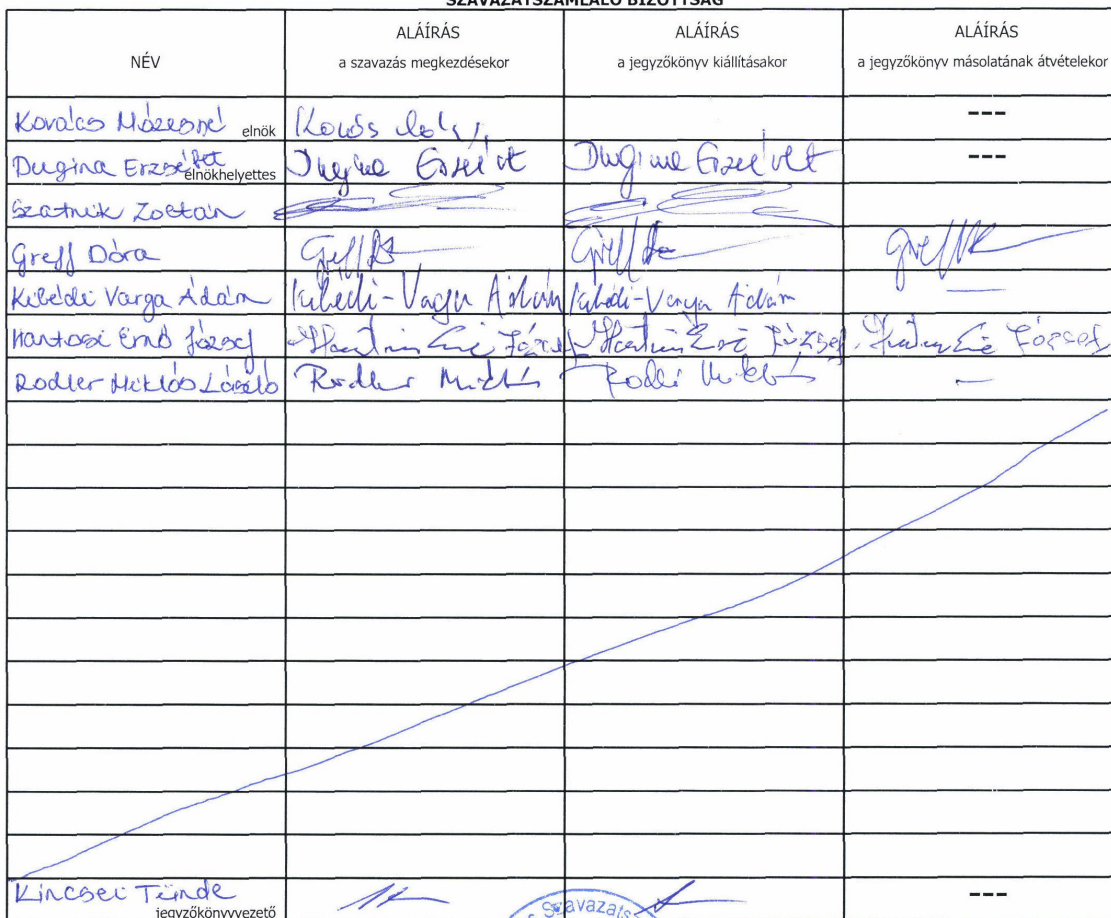 SZAVAZATSZÁMLÁLÓ BIZOTTSÁG
NÉV
ALÁÍRÁS
a szavazás megkezdésekor
ALÁÍRÁS
a jegyzőkönyv kiállításakor
ALÁÍRÁS
a jegyzőkönyv másolatának átvételekor
Kovács Mózesné elnök ---
Dugina Erzsébet elnökhelyettes Dugina Erzsébet Dugina Erzsébet ---
Szatnik Zoltán
Greff Dóra
Kibédi Varga Ádám Kibédi-Varga Ádám Kibédi-Varga Ádám
Hantosi Ernő József
Rodler Miklós László Rodler Miklós Rodler Miklós —
Kincsei Tünde jegyzőkönyvvezető ---
Szavazats